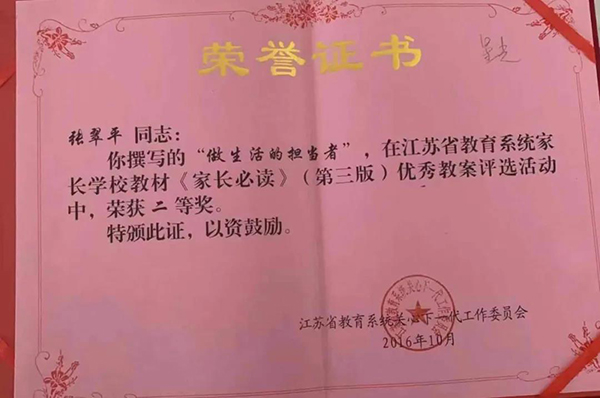 荣誉证书
张翠平 同志：
你撰写的“做生活的担当者”，在江苏省教育系统家
长学校教材《家长必读》（第三版）优秀教案评选活动
中，荣获二等奖。
特颁此证，以资鼓励。
江苏省教育系统关心下一代工作委员会
2016年10月